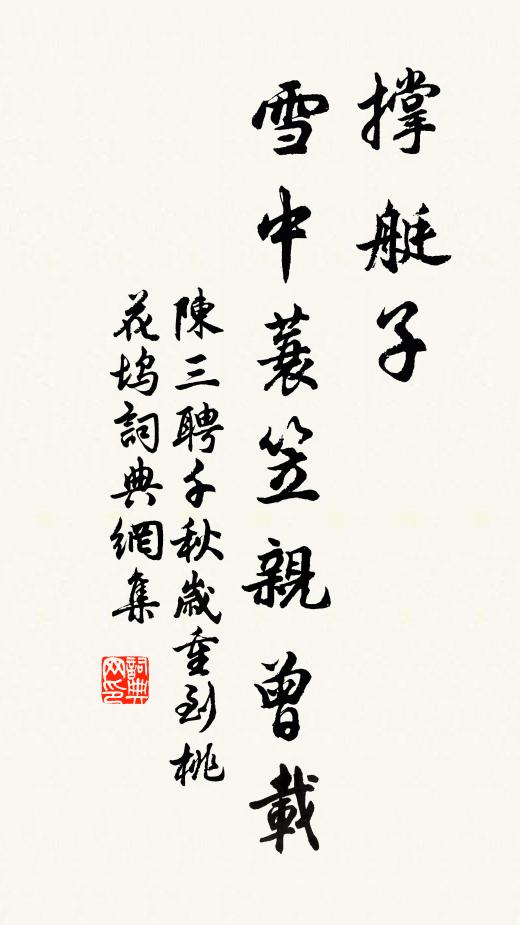 撑艇子
雪中蓑笠親曾載
陳三聘千秋歲重到桃
花塢詞典網集
詞典網印